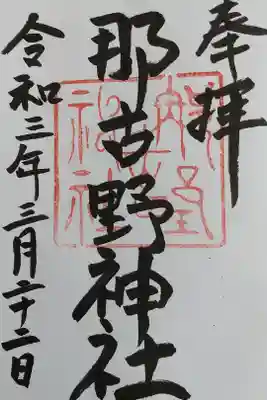 奉拝
那古野神社
令和三年三月二十二日